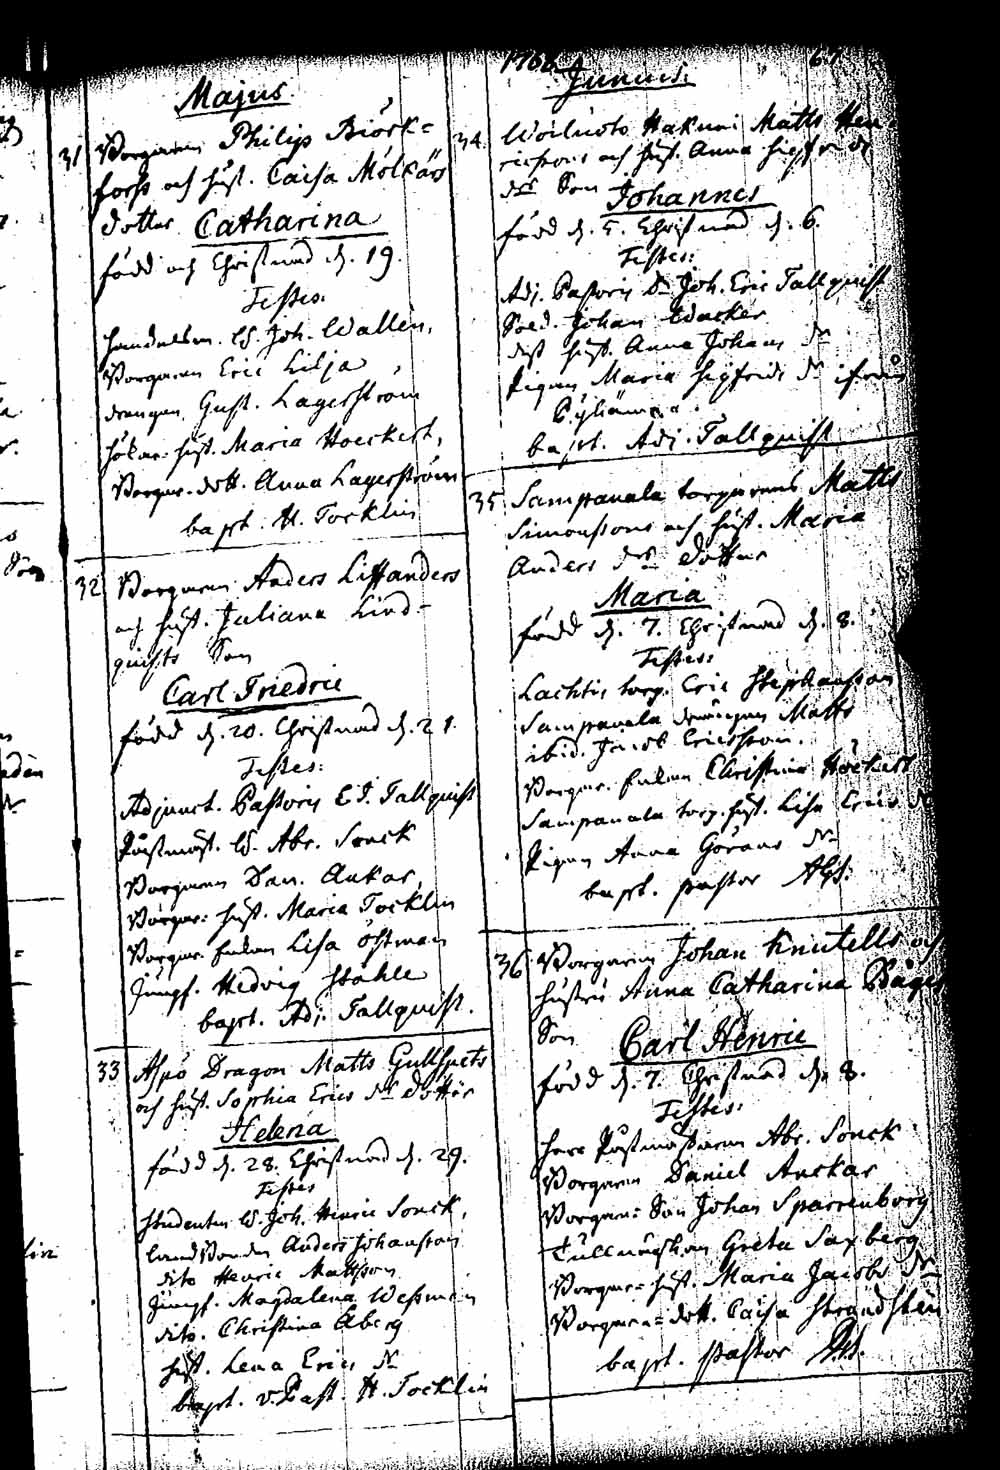 Majus
31 Borgaren Philip Biörk=
forss och hust. Caisa Molkärs
dotter Catharina
född och Christnad d. 19.
Testes:
Handelsm. H. Joh. Wallen,
Borgaren Eric Lilja
drengen Gust. Lagerström
hust. Maria Hoeckert,
Borgar. dott. Anna Lagerström
bapt. H. Tocklin
32 Borgaren Anders Liffanders
och hust. Juliana Lind-
quists Son
Carl Friedric
född d. 20. Christnad d. 21.
Testes:
Adjunct. Pastoris E. J. Tallquist
Påstmäst. H. Abr. Sonck
Borgaren Dan. Ankar,
Borgar: hust. Maria Tocklin
Borgar. Enkan Lisa Östman
Jungf. Hedvig Ståhle
bapt. Adj. Tallquist.
33 Aspö Dragon Matts Gullspets
och hust. Sophia Erics dr dotter
Helena
född d. 28. Christnad d. 29.
Testes
Studenten H. Joh. Henric Sonck,
Landbonden Anders Johansson
dito Henric Mattsson
Jungf. Magdalena Wessman
dito. Christina Åberg
hust. Lena Erics dr
bapt. v. Past. H. Tocklin
1766 67
Junius:
34. Hakuni Matts Hen-
ricssons och hust. Anna Sigfrids
dr Son Johannes
född d. 5. Christnad d. 6.
Testes:
Adj. Pastoris Dn Joh. Eric Tallquist
Sold. Johan Wacker
dess hust. Anna Johans dr
Pigan Maria Sigfrids dr ifrån
bapt. Adj. Tallquist
35 Sampanala torparens Matts
Simonssons och hust. Maria
Anders dr dotter
Maria
född d. 7. Christnad d. 8.
Testes:
Lachtis torp. Eric Stephansson
Sampanala drängen Matts
ibid. Jacob Ericsson.
Borgar. Enkan Christina Höckert
Sampanala torp. hust. Lisa Erics dr
Pigan Anna Görans dr
bapt. pastor
36 Borgaren Johan Knutells och
hustru Anna Catharina Båges
Son Carl Henric
född d. 7. Christnad d. 8.
Testes:
Herr Påstmästaren Abr. Sonck
Borgaren Daniel Anckar
Borgare= Son Johan Sparrenborg
Greta Saxberg
Borgar= hust. Maria Jacobs dr
Borgare= dott. Caisa Strandsten
bapt. Pastor